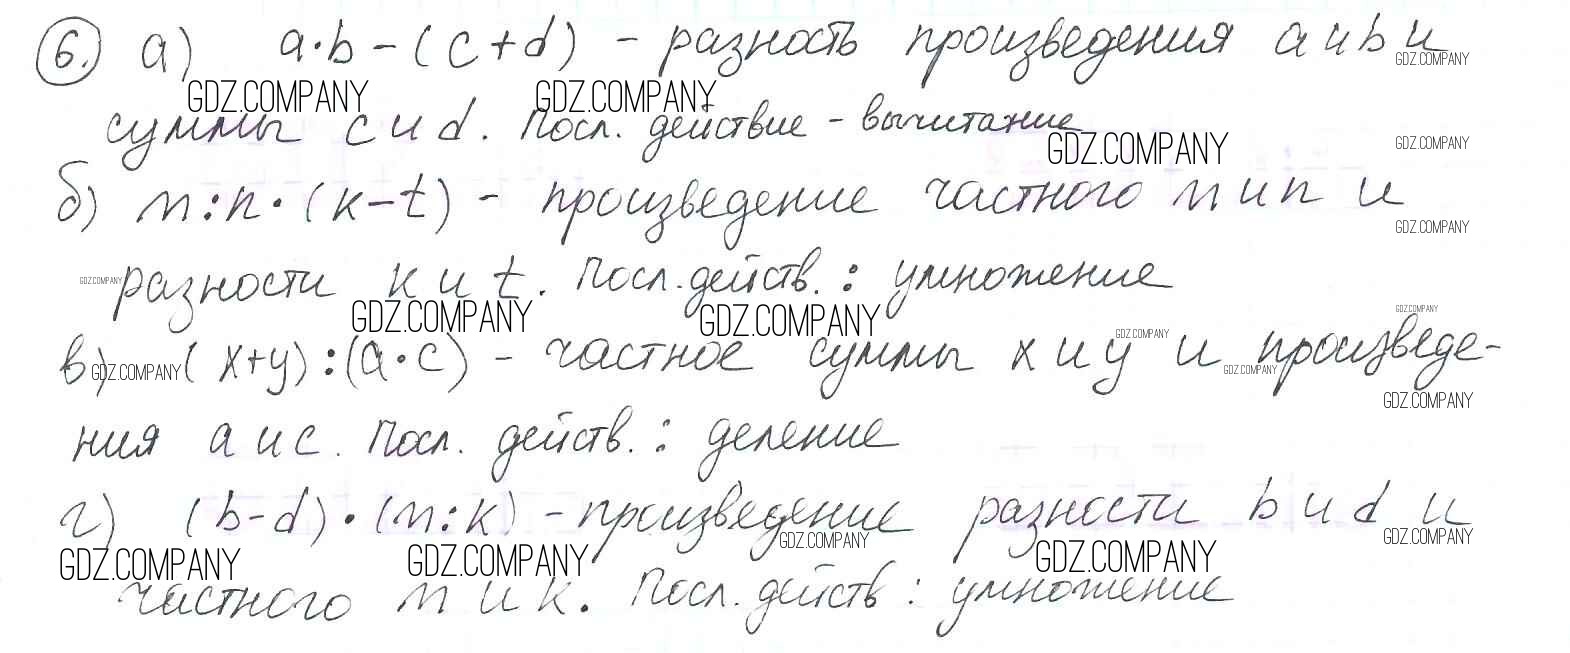 6. а) a·b-(c+d) - разность произведения a и b и
GDZ.COMPANY GDZ.COMPANY GDZ.COMPANY
суммы c и d. Посл. действие - вычитание
GDZ.COMPANY GDZ.COMPANY
б) m:n·(k-t) - произведение частного m и n и
GDZ.COMPANY
GDZ.COMPANY разности k и t. Посл. действ.: умножение
GDZ.COMPANY GDZ.COMPANY GDZ.COMPANY GDZ.COMPANY
в) GDZ.COMPANY (x+y):(a·c) - частное суммы x и y и произведе-
GDZ.COMPANY GDZ.COMPANY
ния a и c. Посл. действ.: деление
г) (b-d)·(m:k) - произведение разности b и d и
GDZ.COMPANY GDZ.COMPANY GDZ.COMPANY GDZ.COMPANY GDZ.COMPANY
частного m и k. Посл. действ: умножение